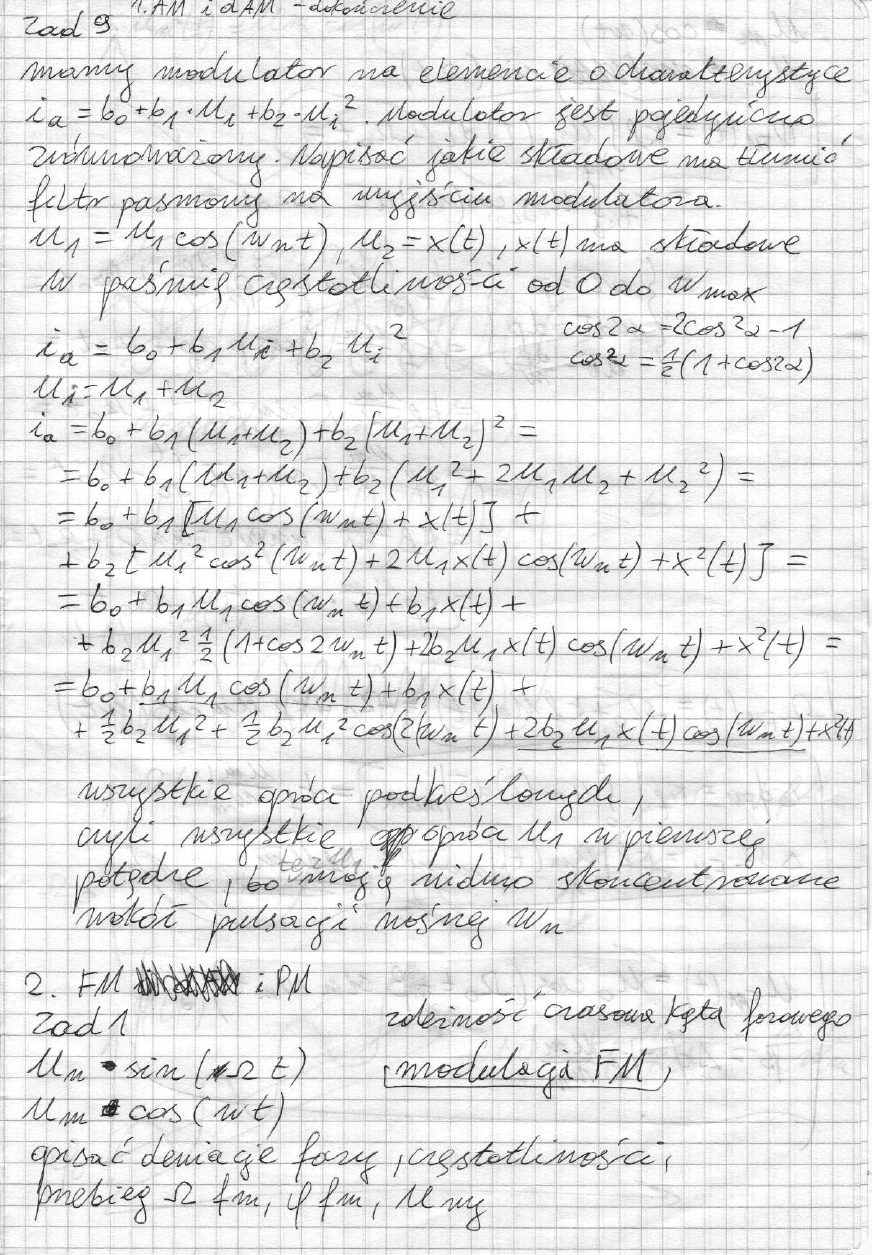 1. AM i dAM - dokończenie
Zad 9
mamy modulator na elemencie o charakterystyce
i_a = b_0 + b_1·u_i + b_2·u_i^2. Modulator jest pojedyńczo
zrównoważony. Napisać jakie składowe ma tłumić
filtr pasmowy na wyjściu modulatora.
u_1 = U_1 cos(w_n t), u_2 = x(t), x(t) ma składowe
w paśmie częstotliwości od 0 do w_max
cos2α = 2cos^2α - 1
i_a = b_0 + b_1 u_i + b_2 u_i^2
cos^2α = 1/2(1+cos2α)
u_i = u_1 + u_2
i_a = b_0 + b_1(u_1+u_2) + b_2[u_1+u_2)^2 =
= b_0 + b_1(u_1+u_2) + b_2(u_1^2 + 2u_1u_2 + u_2^2) =
= b_0 + b_1[U_1 cos(w_n t) + x(t)] +
+ b_2[U_1^2 cos^2(w_n t) + 2U_1 x(t) cos(w_n t) + x^2(t)] =
= b_0 + b_1 U_1 cos(w_n t) + b_1 x(t) +
+ b_2 U_1^2 1/2(1+cos2w_n t) + 2b_2 U_1 x(t) cos(w_n t) + x^2(t) =
= b_0 + b_1 U_1 cos(w_n t) + b_1 x(t) +
+ 1/2 b_2 U_1^2 + 1/2 b_2 U_1^2 cos(2w_n t) + 2b_2 U_1 x(t) cos(w_n t) + x^2(t)
wszystkie oprócz podkreślonych,
czyli wszystkie oprócz U_1 w pierwszej
potędze, bo mają widmo skoncentrowane
wokół pulsacji nośnej w_n
2. FM i PM
Zad 1
zależność czasowa kąta fazowego
U_n · sin(Ω t)
modulacja FM
U_m · cos(wt)
opisać dewiacje fazy, częstotliwości,
przebieg Ω fm, φ fm, U wy